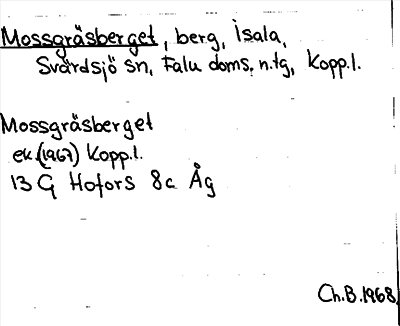 Mossgräsberget, berg, Isala,
Svärdsjö sn, Falu doms. n. tg, Kopp.l.
Mossgräsberget
ek.(1967) Kopp.l.
13 G Hofors 8c Åg
Ch.B.1968